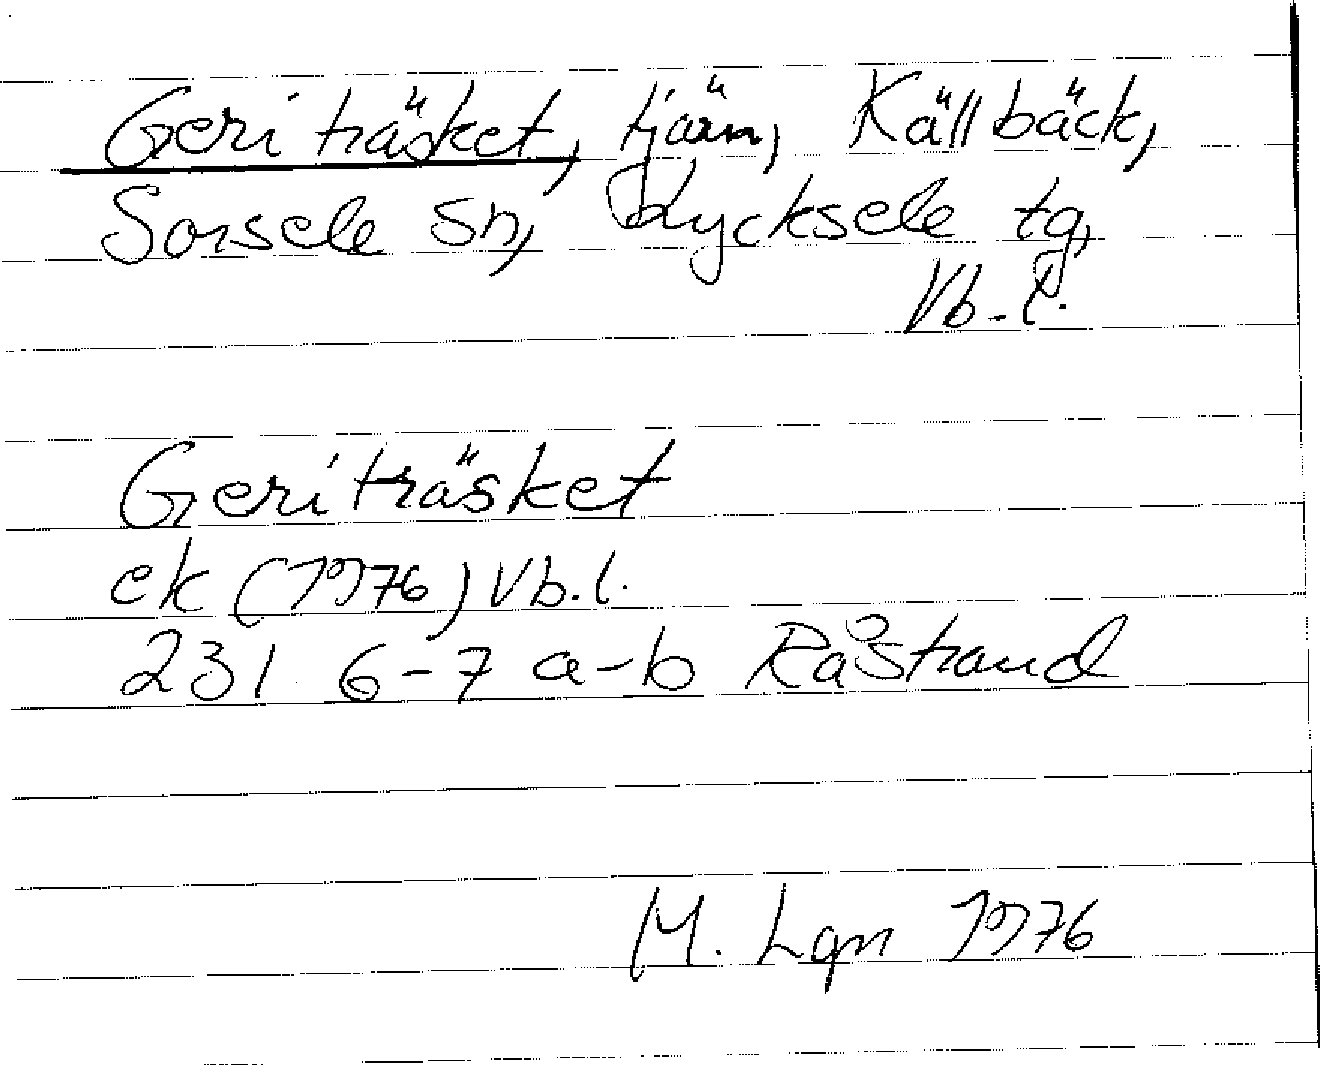 Geriträsket, tjärn, Källbäck,
Sorsele sn, Lycksele tg,
Vb.l.
Geriträsket
ek (1976) Vb.l.
231 6-7 a-b Råstrand
M. Lgn 1976